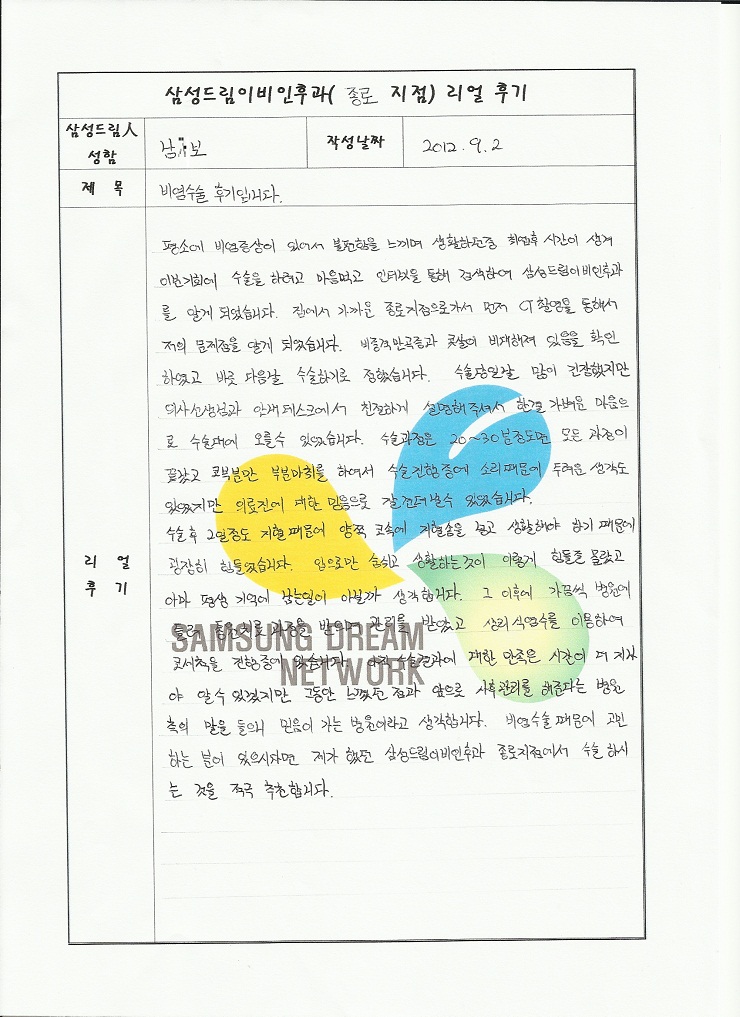 삼성드림이비인후과( 종로 지점) 리얼 후기
삼성드림人 성함
남 보
작성날짜
2012. 9. 2
제 목
비염수술 후기입니다.
리 얼 후 기
평소에 비염증상이 있어서 불편함을 느끼며 생활하던중 시간이 생겨
이번기회에 수술을 하려고 마음먹고 인터넷을 통해 검색하여 삼성드림이비인후과
를 알게 되었습니다. 집에서 가까운 종로지점으로가서 먼저 CT촬영을 통해서
저의 문제점을 알게 되었습니다. 비중격만곡증과 콧살이 비대해져 있음을 확인
하였고 바로 다음날 수술하기로 정했습니다. 수술당일날 많이 긴장했지만
의사선생님과 안내데스크에서 친절하게 설명해주셔서 한결 가벼운 마음으
로 수술대에 오를수 있었습니다. 수술과정은 20~30분정도면 모든 과정이
끝났고 코부분만 부분마취를 하여서 수술진행중에 소리때문에 두려운 생각도
있었지만 의료진에 대한 믿음으로 잘 견뎌낼수 있었습니다.
수술후 2일정도 지혈때문에 양쪽 코속에 지혈솜을 넣고 생활해야 하기 때문에
굉장히 힘들었습니다. 입으로만 숨쉬고 생활하는것이 이렇게 힘들줄 몰랐고
아마 평생 기억에 남는일이 아닐까 생각합니다. 그 이후에 가끔씩 병원에
들려 통원치료 과정을 받으며 관리를 받았고 생리식염수를 이용하여
코세척을 진행중에 있습니다. 아직 수술결과에 대한 만족은 시간이 더 지나
야 알수 있겠지만 그동안 느꼈던 점과 앞으로 사후관리를 해준다는 병원
측의 말을 들으니 믿음이 가는 병원이라고 생각합니다. 비염수술때문에 고민
하는 분이 있으시다면 제가 했던 삼성드림이비인후과 종로지점에서 수술하시
는 것을 적극 추천합니다.
SAMSUNG DREAM
NETWORK